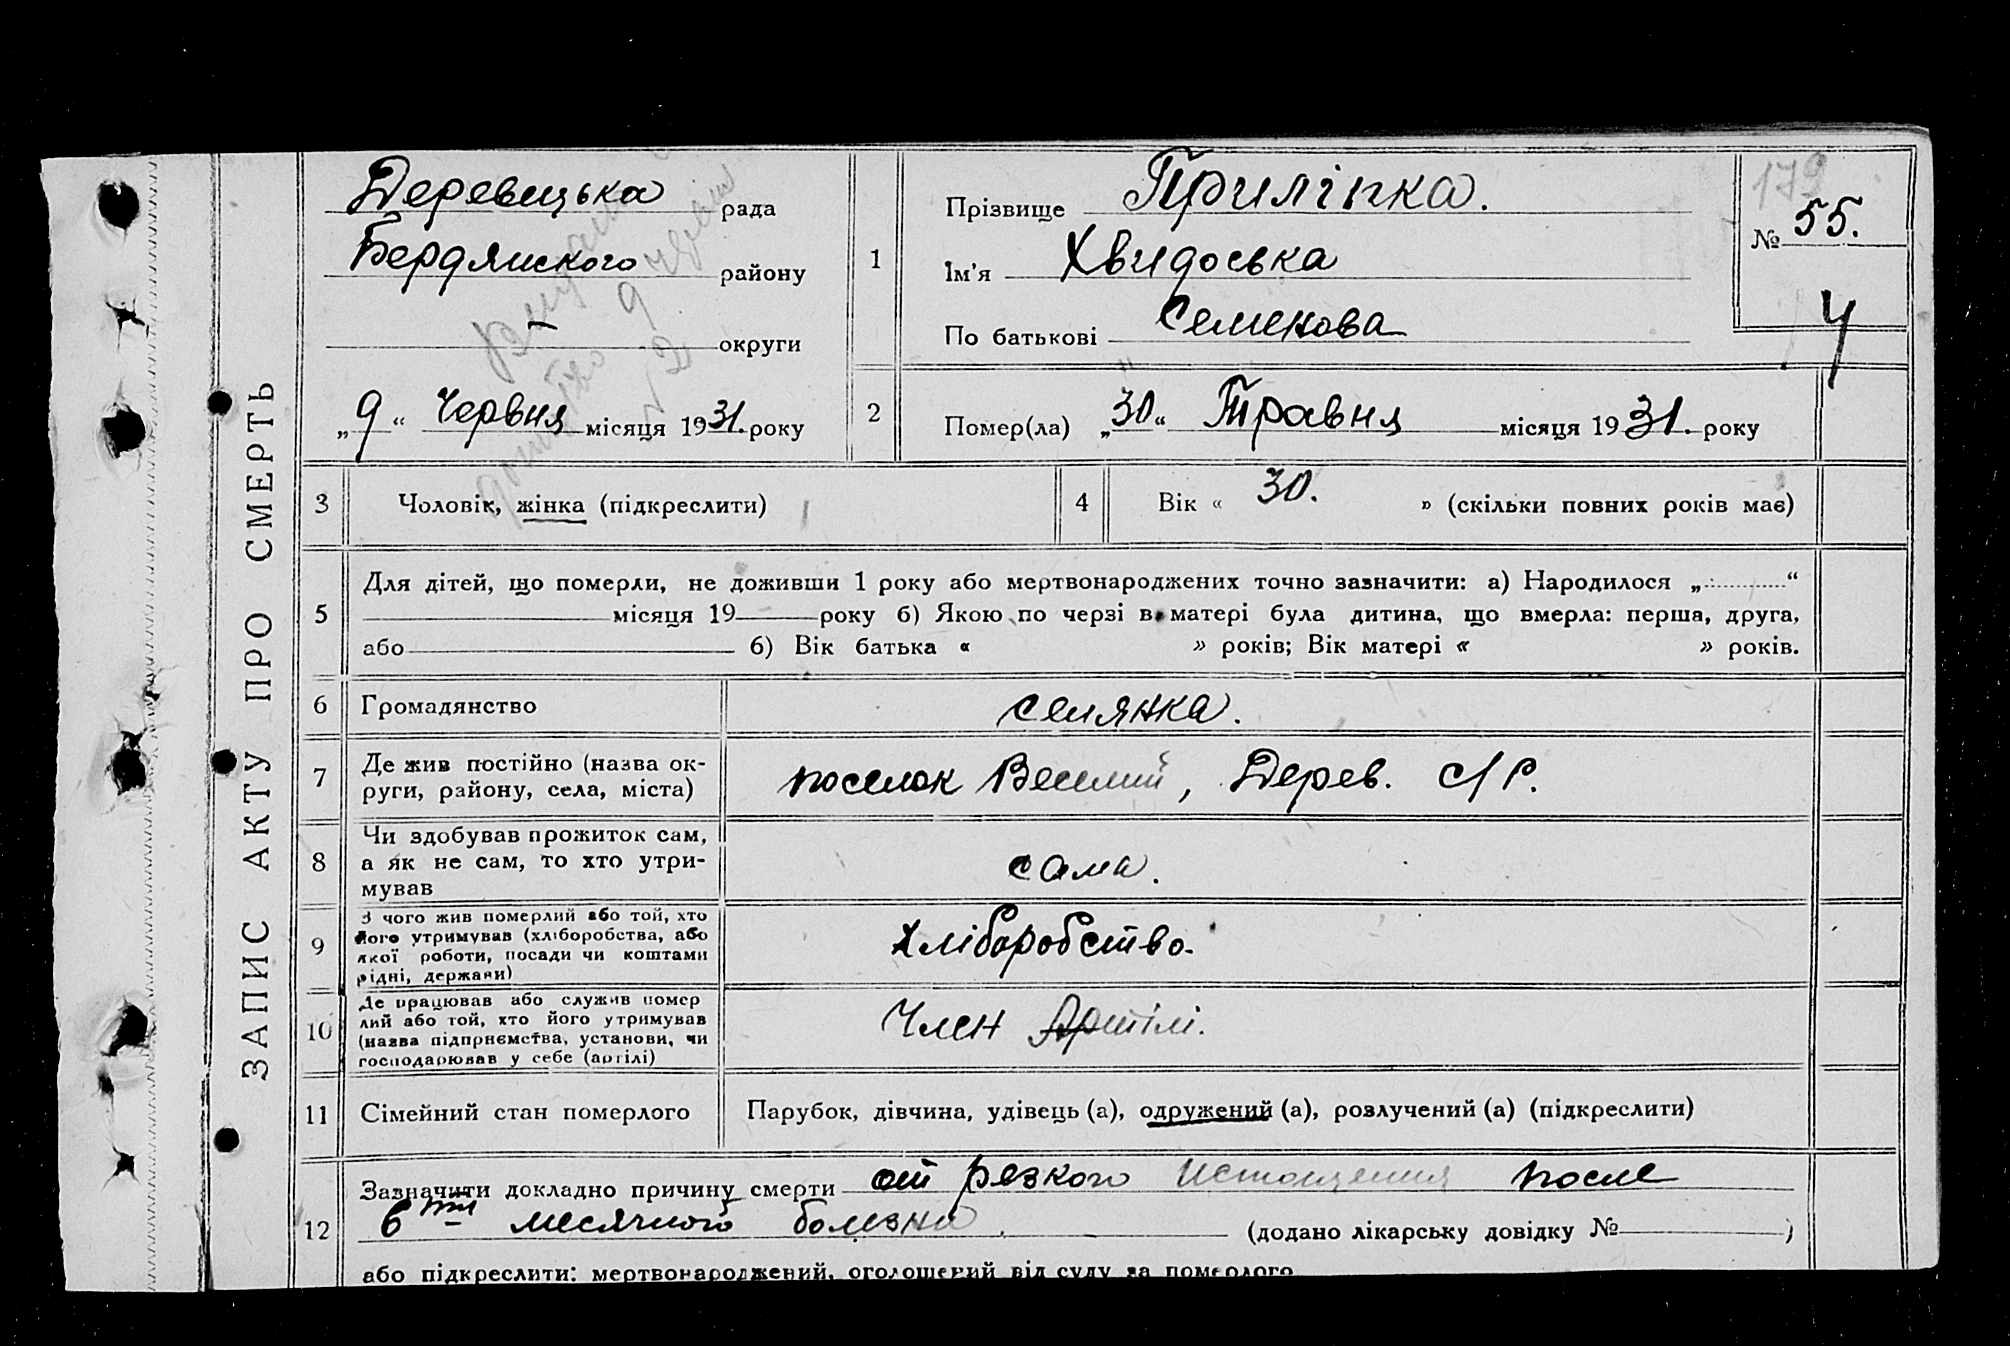 ЗАПИС АКТУ ПРО СМЕРТЬ
Деревецька рада
Бердянского району
— округи
„9“ Червня місяця 1931. року
1
Прізвище Приліпка.
Ім'я Хвидоська
По батькові Семенова
179
№ 55.
2
Помер(ла) „30“ Травня місяця 1931. року
3
Чоловік, жінка (підкреслити)
4
Вік « 30. » (скільки повних років має)
5
Для дітей, що померли, не доживши 1 року або мертвонароджених точно зазначити: а) Народилося „ “
місяця 19 року б) Якою по черзі в матері була дитина, що вмерла: перша, друга,
або б) Вік батька « » років; Вік матері « » років.
6
Громадянство
селянка.
7
Де жив постійно (назва ок-
руги, району, села, міста)
поселок Веселий, Дерев. с/р.
8
Чи здобував прожиток сам,
а як не сам, то хто утри-
мував
сама.
9
З чого жив померлий або той, хто
його утримував (хліборобства, або
якої роботи, посади чи коштами
рідні, держави)
Хліборобство.
10
Де працював або служив помер
лий або той, хто його утримував
(назва підприємства, установи, чи
господарював у себе (артілі)
Член Артілі.
11
Сімейний стан померлого
Парубок, дівчина, удівець (а), одружений (а), розлучений (а) (підкреслити)
12
Зазначити докладно причину смерти от резкого истощения после
6ти месячной болезни. (додано лікарську довідку № )
або підкреслити: мертвонароджений, оголошений від суду за померлого